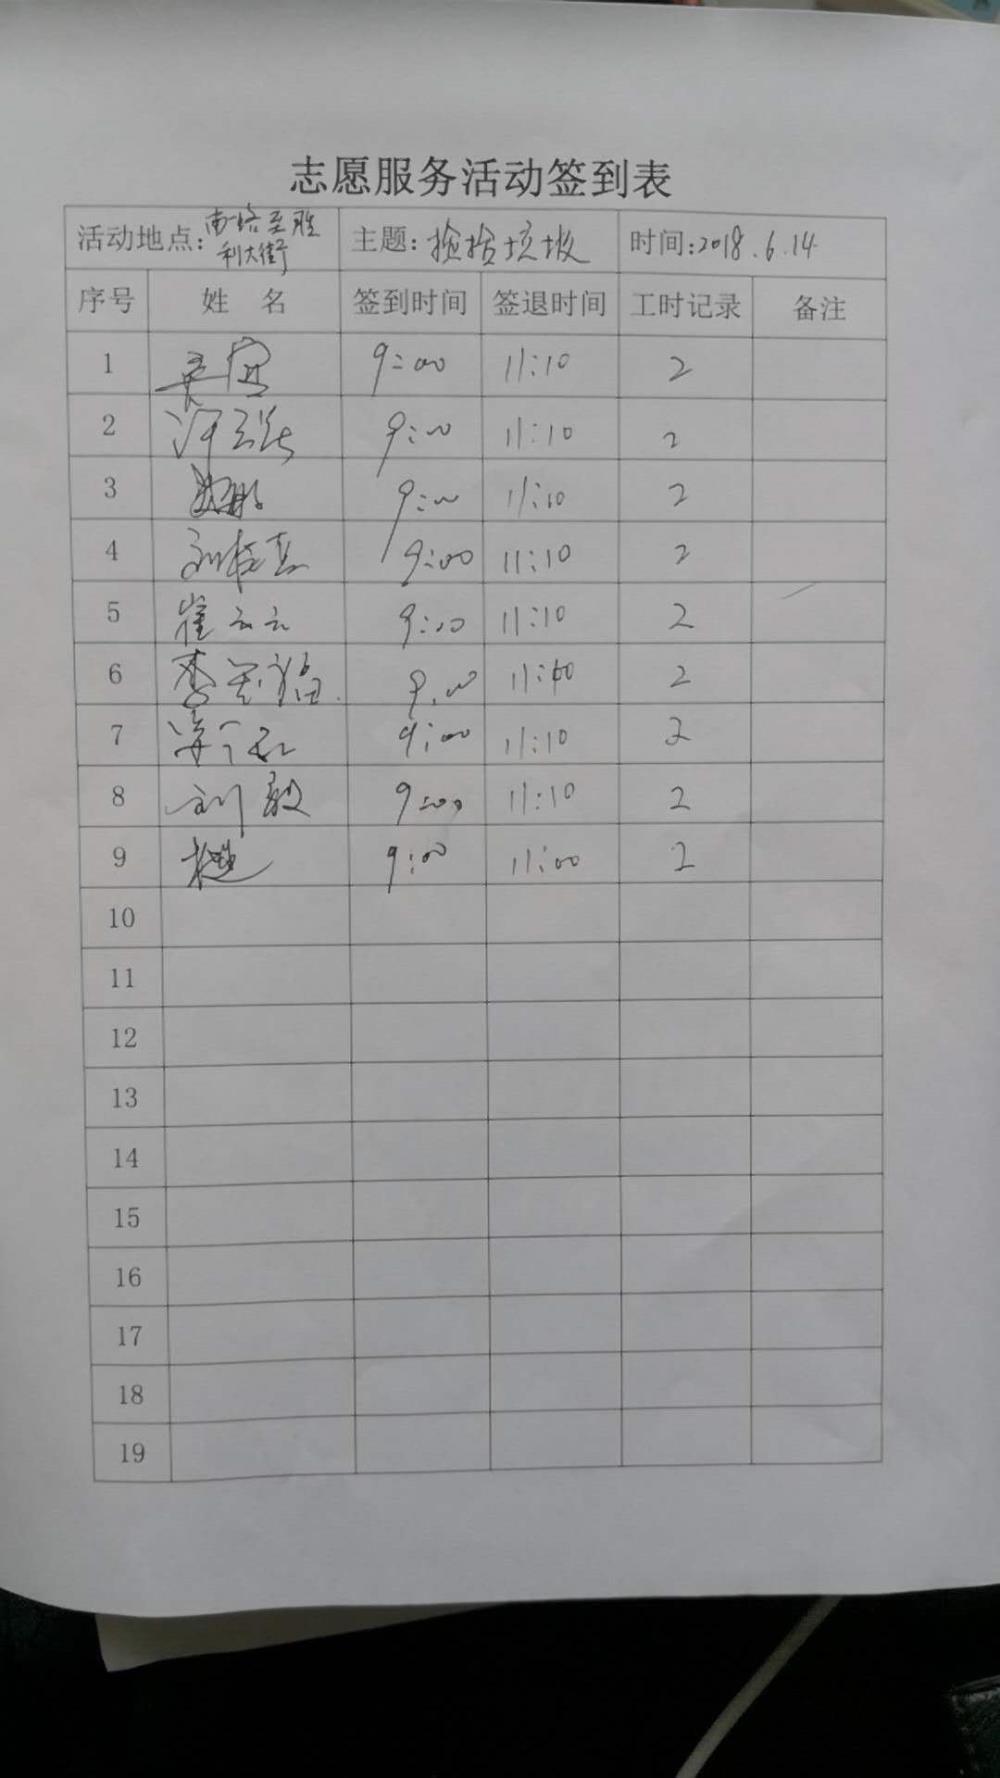 志愿服务活动签到表
活动地点: 南路至胜利大街 主题: 捡拾垃圾 时间: 2018.6.14
序号 姓名 签到时间 签退时间 工时记录 备注
1 9:00 11:10 2
2 9:00 11:10 2
3 9:00 11:10 2
4 9:00 11:10 2
5 崔云云 9:00 11:10 2
6 李 9:00 2
7 9:00 11:10 2
8 刘毅 9:00 11:10 2
9 9:00 11:00 2
10
11
12
13
14
15
16
17
18
19